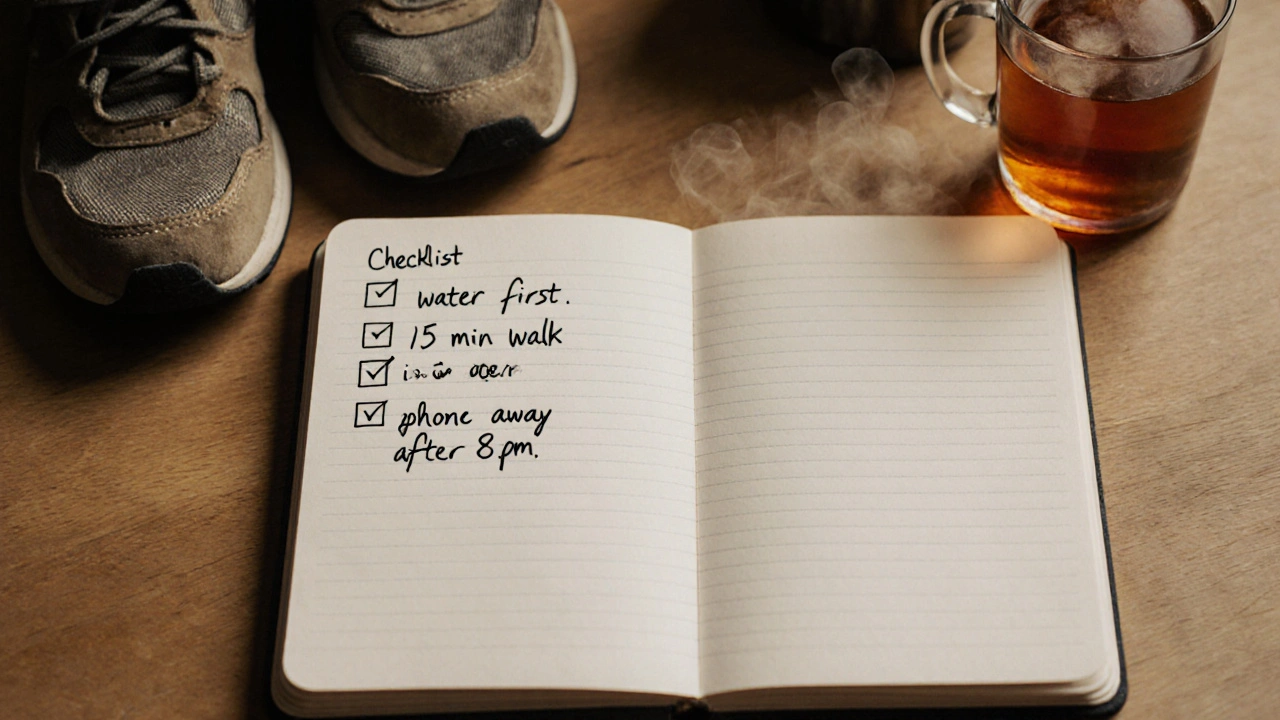 Checklist
water first.
15 min walk
phone away
after 8pm.